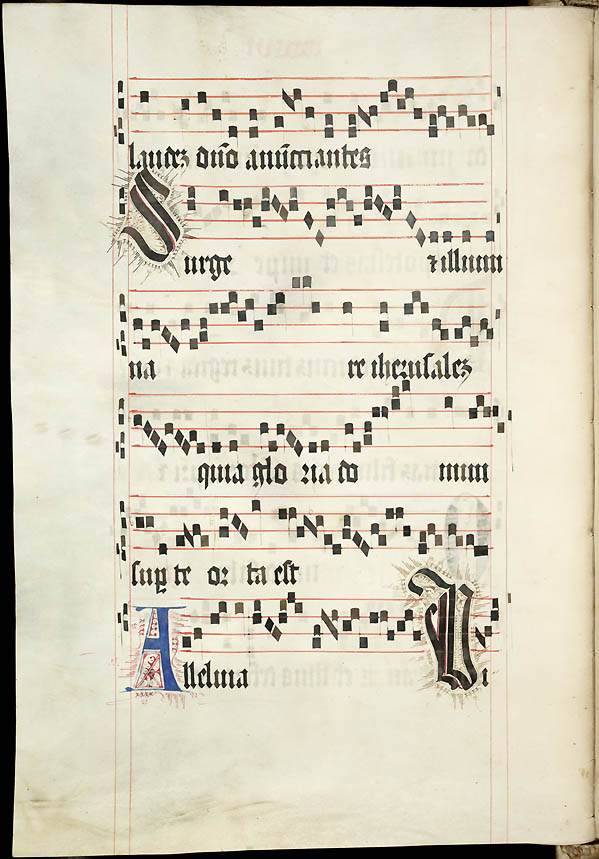 laudez dño anũctiantes
Surge ⁊ illumi
na re iherusalez
quia glo ria do mini
sup te or ta est
Alleluia Vi